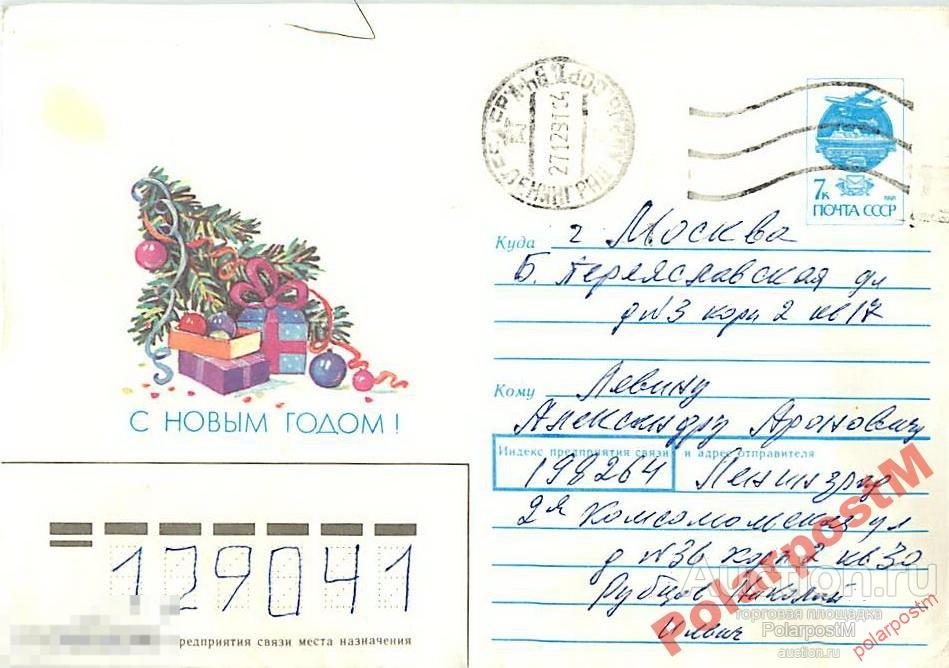 ЛЕНИНГРАД
27 12 91
7к 1991
ПОЧТА СССР
Куда г Москва
Б. Переяславская ул
д №3 корп 2 кв 17
Кому Левину
Александру Ароновичу
С НОВЫМ ГОДОМ!
Индекс предприятия связи и адрес отправителя
198264 Ленинград
2я Комсомольская ул
д №36 корп 2 кв 30
Рубцов Николай
Ильич
129041
предприятия связи места назначения
PolarpostM
Auction.ru
торговая площадка
PolarpostM
auction.ru
polarpostm